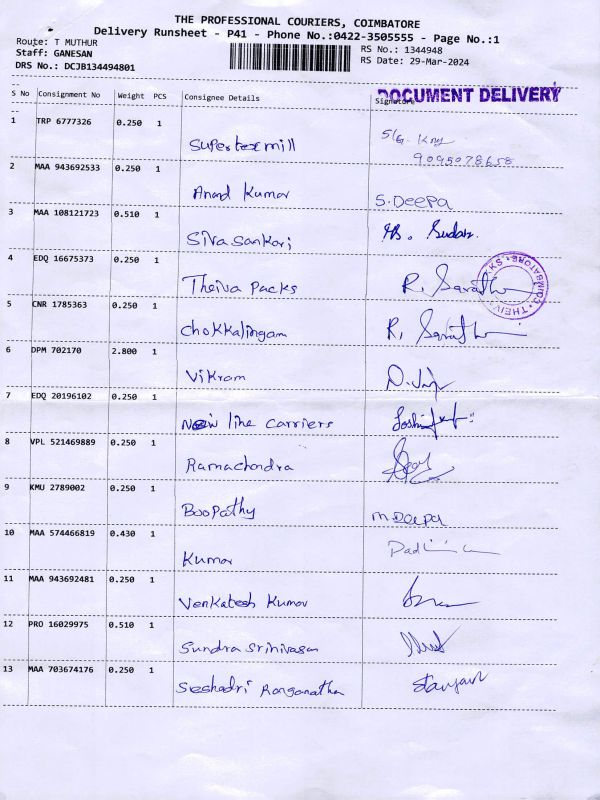 THE PROFESSIONAL COURIERS, COIMBATORE
Delivery Runsheet - P41 - Phone No.:0422-3505555 - Page No.:1
Route: T MUTHUR
Staff: GANESAN
DRS No.: DCJB134494801
RS No.: 1344948
RS Date: 29-Mar-2024
S No Consignment No Weight PCS Consignee Details Signature
DOCUMENT DELIVERY
1 TRP 6777326 0.250 1
Supertex mill
9095078658
2 MAA 943692533 0.250 1
Anand Kumar S. Deepa
3 MAA 108121723 0.510 1
Siva Sankari
4 EDQ 16675373 0.250 1
Theiva Packs R. Sarath
5 CNR 1785363 0.250 1
Chokkalingam R. Sarath
6 DPM 702170 2.800 1
Vikram
7 EDQ 20196102 0.250 1
New line carriers
8 VPL 521469889 0.250 1
Ramachandra
9 KMU 2789002 0.250 1
Boopathy M. Deepa
10 MAA 574466819 0.430 1
Kumar
11 MAA 943692481 0.250 1
Venkatesh Kumar
12 PRO 16029975 0.510 1
Sundra Srinivasan
13 MAA 703674176 0.250 1
Seshadri Ranganathan